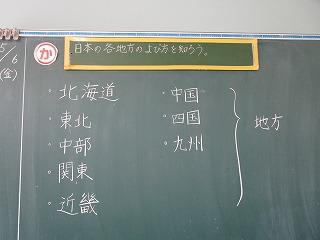 5/6
(金)
か
日本の各地方のよび方を知ろう。
・北海道
・東北
・中部
・関東
・近畿
・中国
・四国
・九州
地方